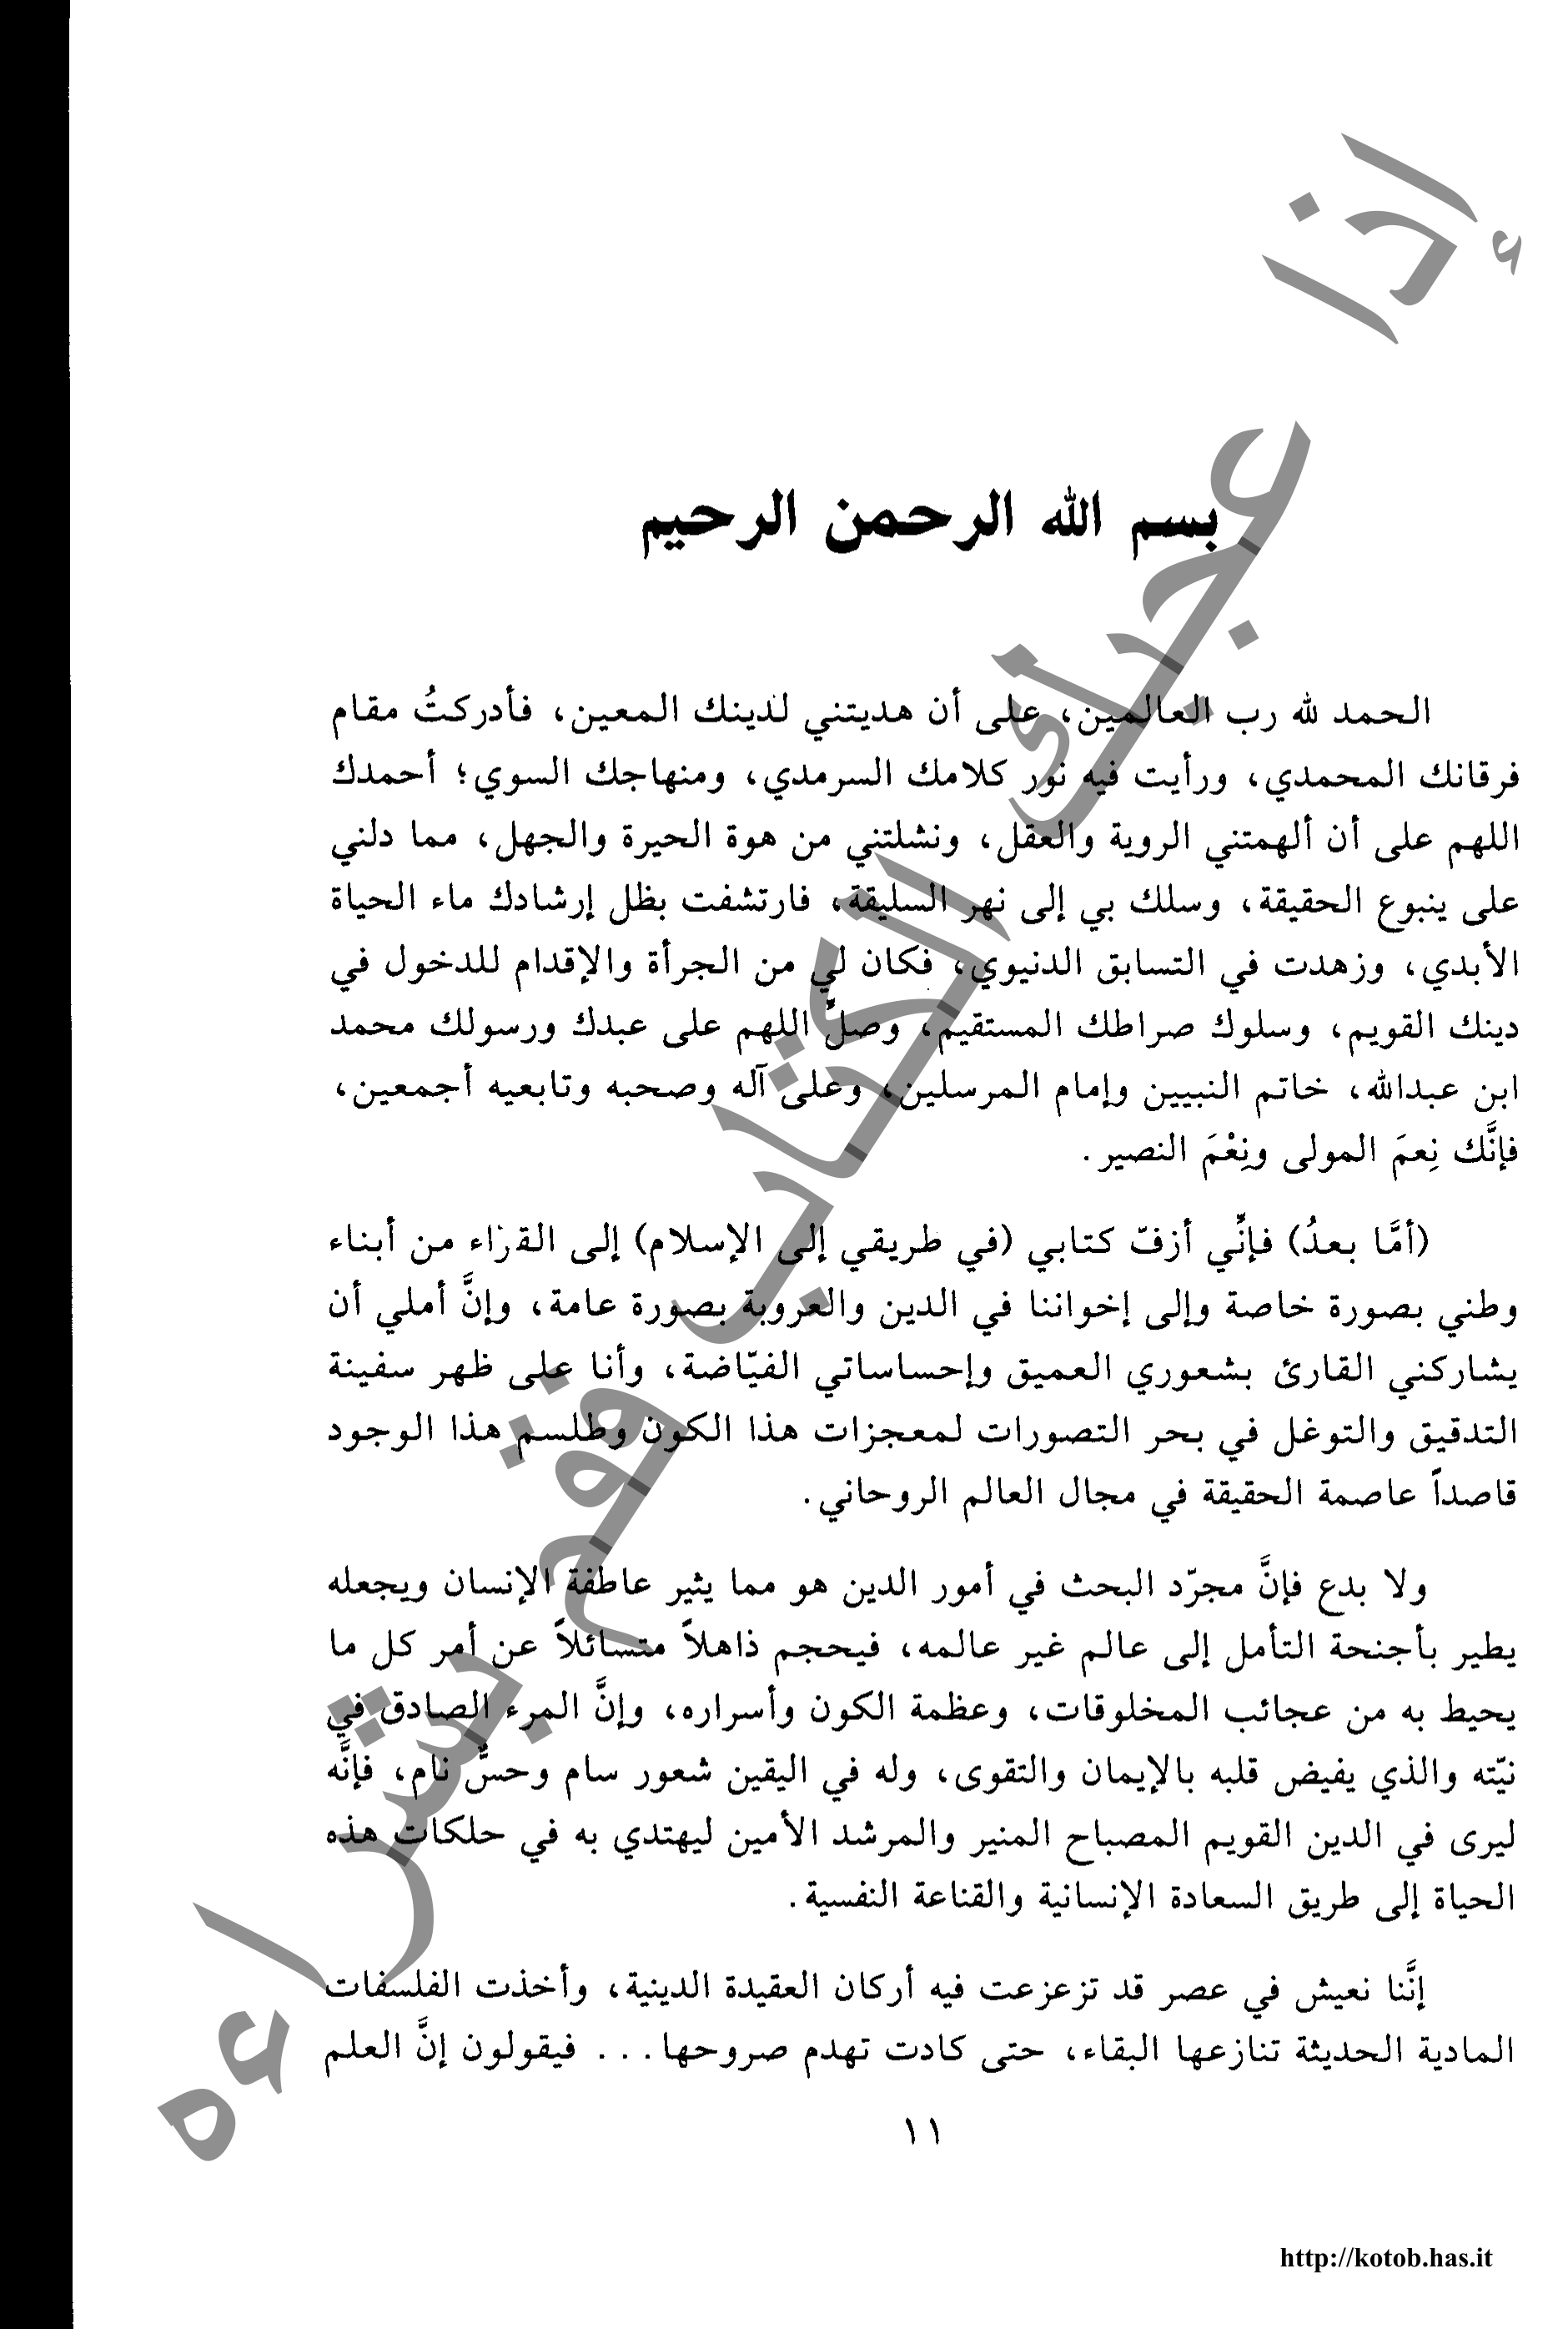 بسم الله الرحمن الرحيم
الحمد لله رب العالمين، على أن هديتني لدينك المعين، فأدركتُ مقام
فرقانك المحمدي، ورأيت فيه نور كلامك السرمدي، ومنهاجك السوي؛ أحمدك
اللهم على أن ألهمتني الروية والعقل، ونشلتني من هوة الحيرة والجهل، مما دلني
على ينبوع الحقيقة، وسلك بي إلى نهر السليقة، فارتشفت بظل إرشادك ماء الحياة
الأبدي، وزهدت في التسابق الدنيوي، فكان لي من الجرأة والإقدام للدخول في
دينك القويم، وسلوك صراطك المستقيم، وصلِّ اللهم على عبدك ورسولك محمد
ابن عبدالله، خاتم النبيين وإمام المرسلين، وعلى آله وصحبه وتابعيه أجمعين،
فإنَّك نِعمَ المولى ونِعْمَ النصير.
(أمَّا بعدُ) فإنِّي أزفّ كتابي (في طريقي إلى الإسلام) إلى القرّاء من أبناء
وطني بصورة خاصة وإلى إخواننا في الدين والعروبة بصورة عامة، وإنَّ أملي أن
يشاركني القارئ بشعوري العميق وإحساساتي الفيّاضة، وأنا على ظهر سفينة
التدقيق والتوغل في بحر التصورات لمعجزات هذا الكون وطلسم هذا الوجود
قاصداً عاصمة الحقيقة في مجال العالم الروحاني.
ولا بدع فإنَّ مجرّد البحث في أمور الدين هو مما يثير عاطفة الإنسان ويجعله
يطير بأجنحة التأمل إلى عالم غير عالمه، فيحجم ذاهلاً متسائلاً عن أمر كل ما
يحيط به من عجائب المخلوقات، وعظمة الكون وأسراره، وإنَّ المرء الصادق في
نيّته والذي يفيض قلبه بالإيمان والتقوى، وله في اليقين شعور سام وحسٌّ نام، فإنَّه
ليرى في الدين القويم المصباح المنير والمرشد الأمين ليهتدي به في حلكات هذه
الحياة إلى طريق السعادة الإنسانية والقناعة النفسية.
إنَّنا نعيش في عصر قد تزعزعت فيه أركان العقيدة الدينية، وأخذت الفلسفات
المادية الحديثة تنازعها البقاء، حتى كادت تهدم صروحها... فيقولون إنَّ العلم
١١
http://kotob.has.it
إذا أعجبك الكتاب فقم بشراءه